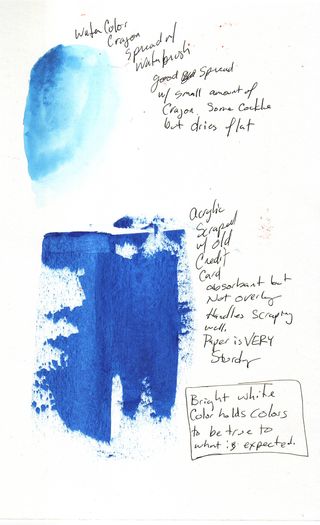 WaterColor
Crayon
Spread w/
Waterbrush
good Spread
w/ small amount of
Crayon. Some Cockle
but dries flat
Acrylic
Scraped
w/ old
Credit
Card
absorbant but
Not overly
Handles Scraping
well.
Paper is VERY
Sturdy
Bright white
Color holds colors
to be true to
what is expected.